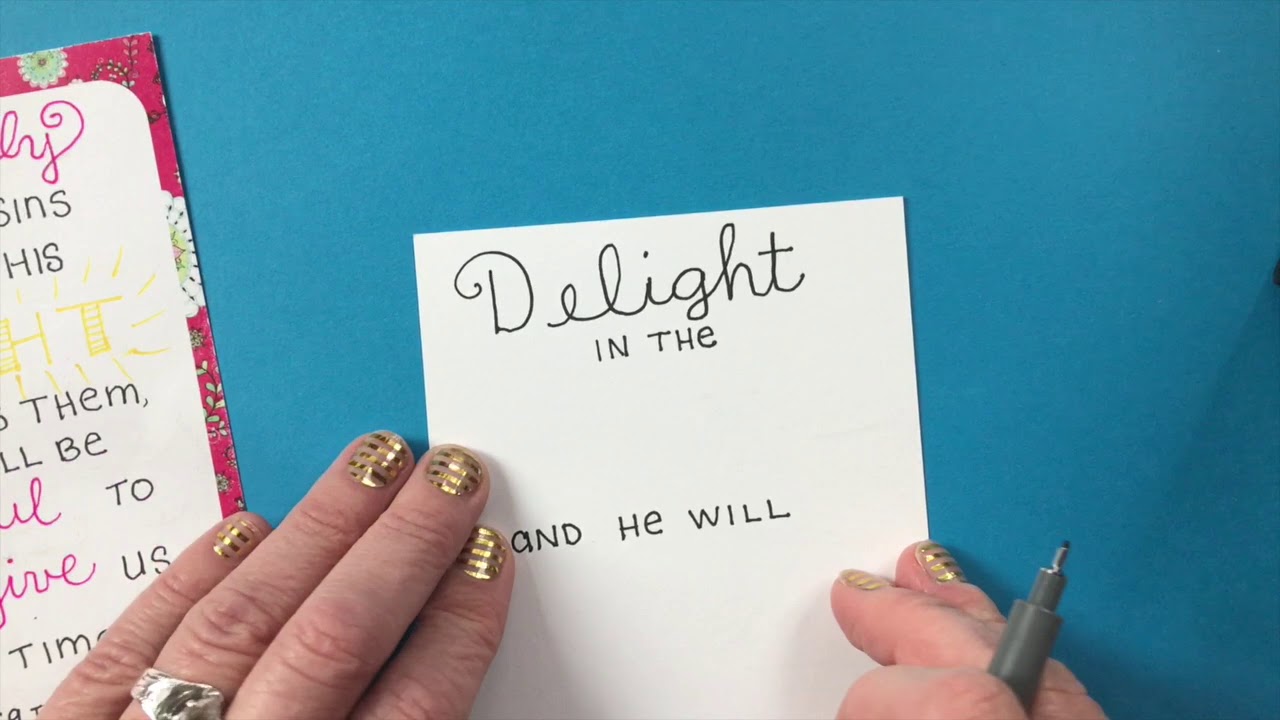 by
sins
HIS
HT
THem,
LL Be
ul TO
give us
Time
Delight
IN THe
aND He WILL